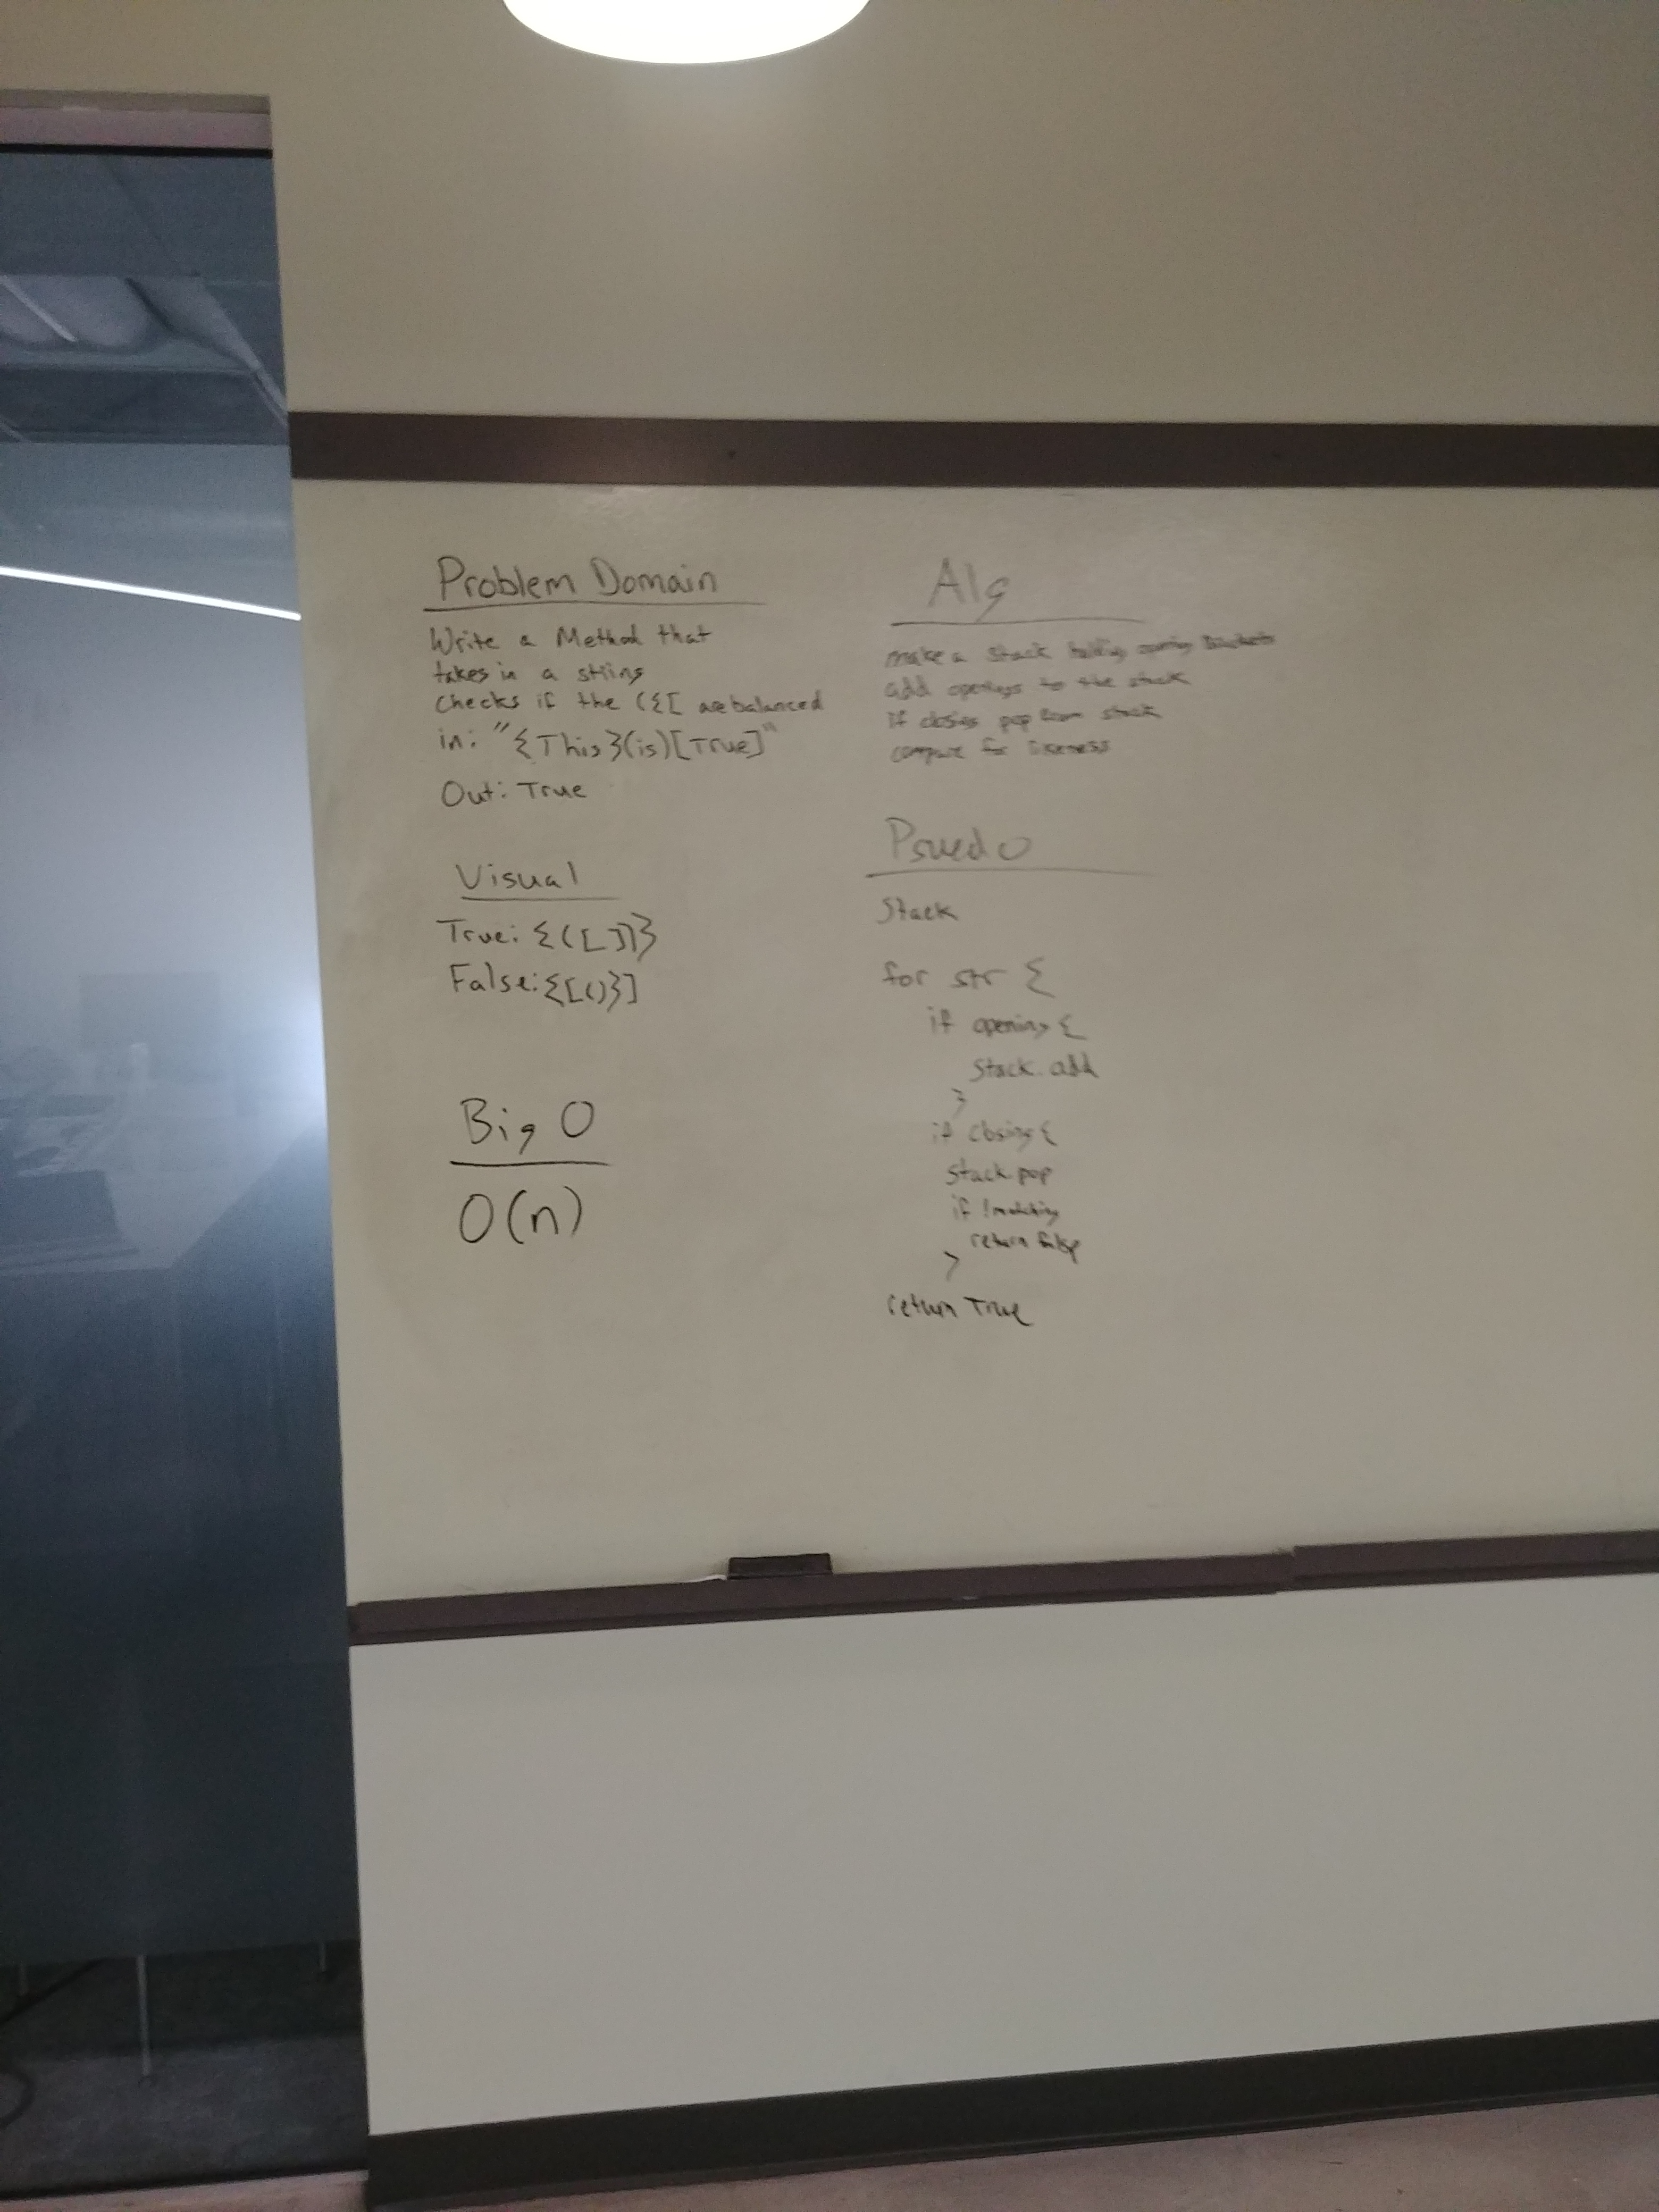 Problem Domain
Write a Method that
takes in a string
checks if the ({[ are balanced
in: "{This}(is)[True]"
Out: True
Visual
True: {([])}
False: {[()}]
Big O
O(n)
Alg
make a stack holding opening brackets
add openings to the stack
if closing pop from stack
compare for likeness
Psuedo
Stack
for str {
if opening {
Stack.add
}
if closing {
stack.pop
if !matching
return false
}
return True